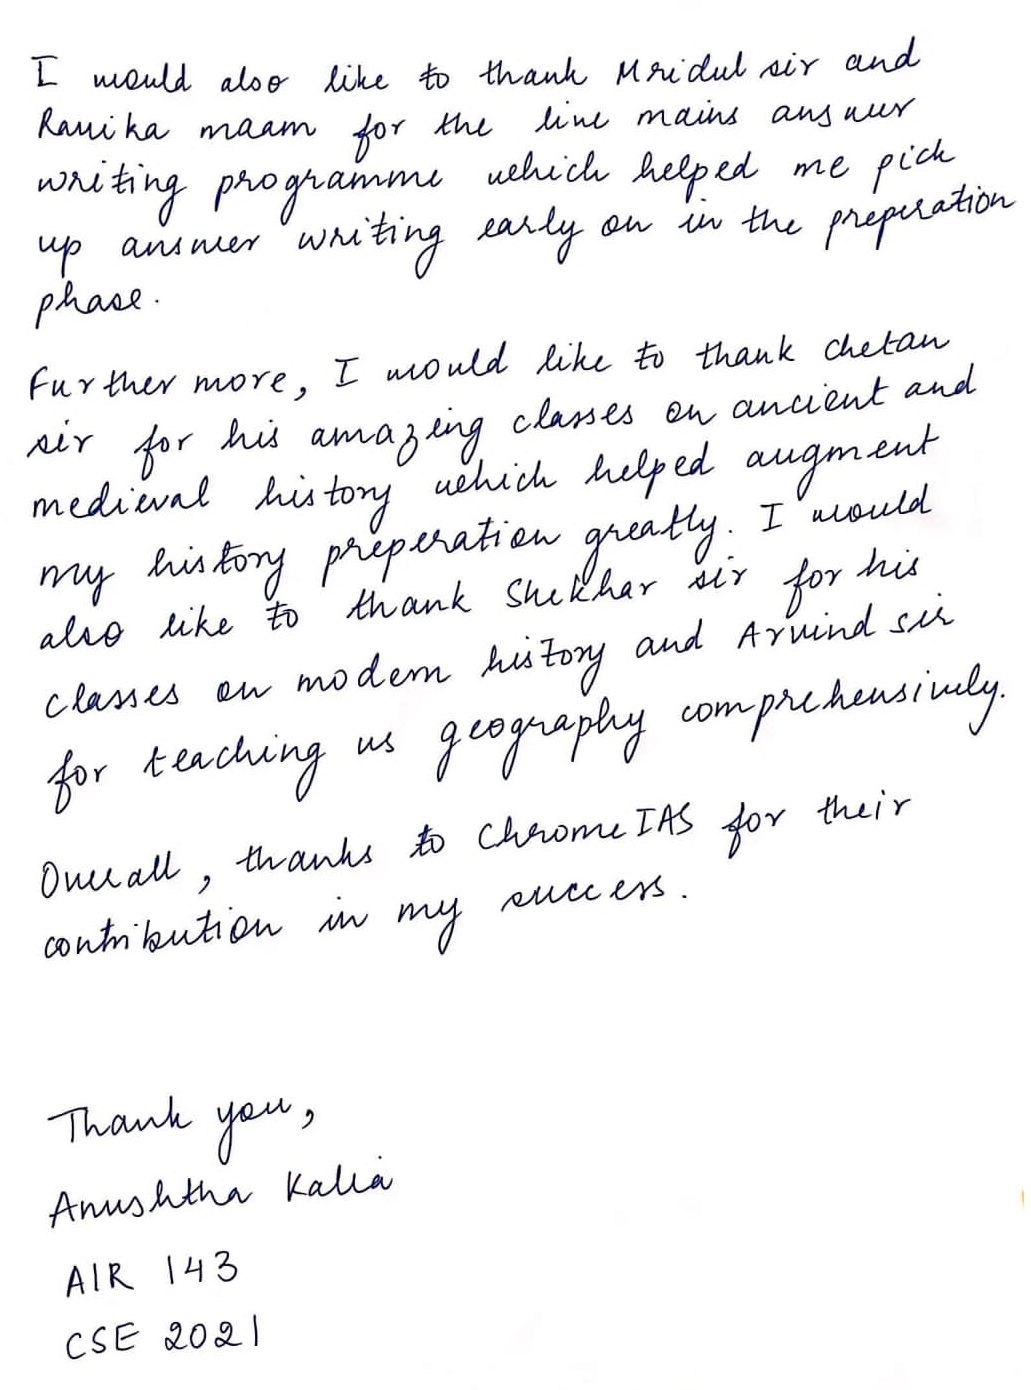 I would also like to thank Mridul sir and
Ravika maam for the live mains answer
writing programme which helped me pick
up answer writing early on in the preperation
phase.
Further more, I would like to thank chetan
sir for his amazing classes on ancient and
medieval history which helped augment
my history preperation greatly. I would
also like to thank Shekhar sir for his
classes on modern history and Arvind sir
for teaching us geography comprehensively.
Overall, thanks to ChromeIAS for their
contribution in my success.
Thank you,
Anushtha Kalia
AIR 143
CSE 2021